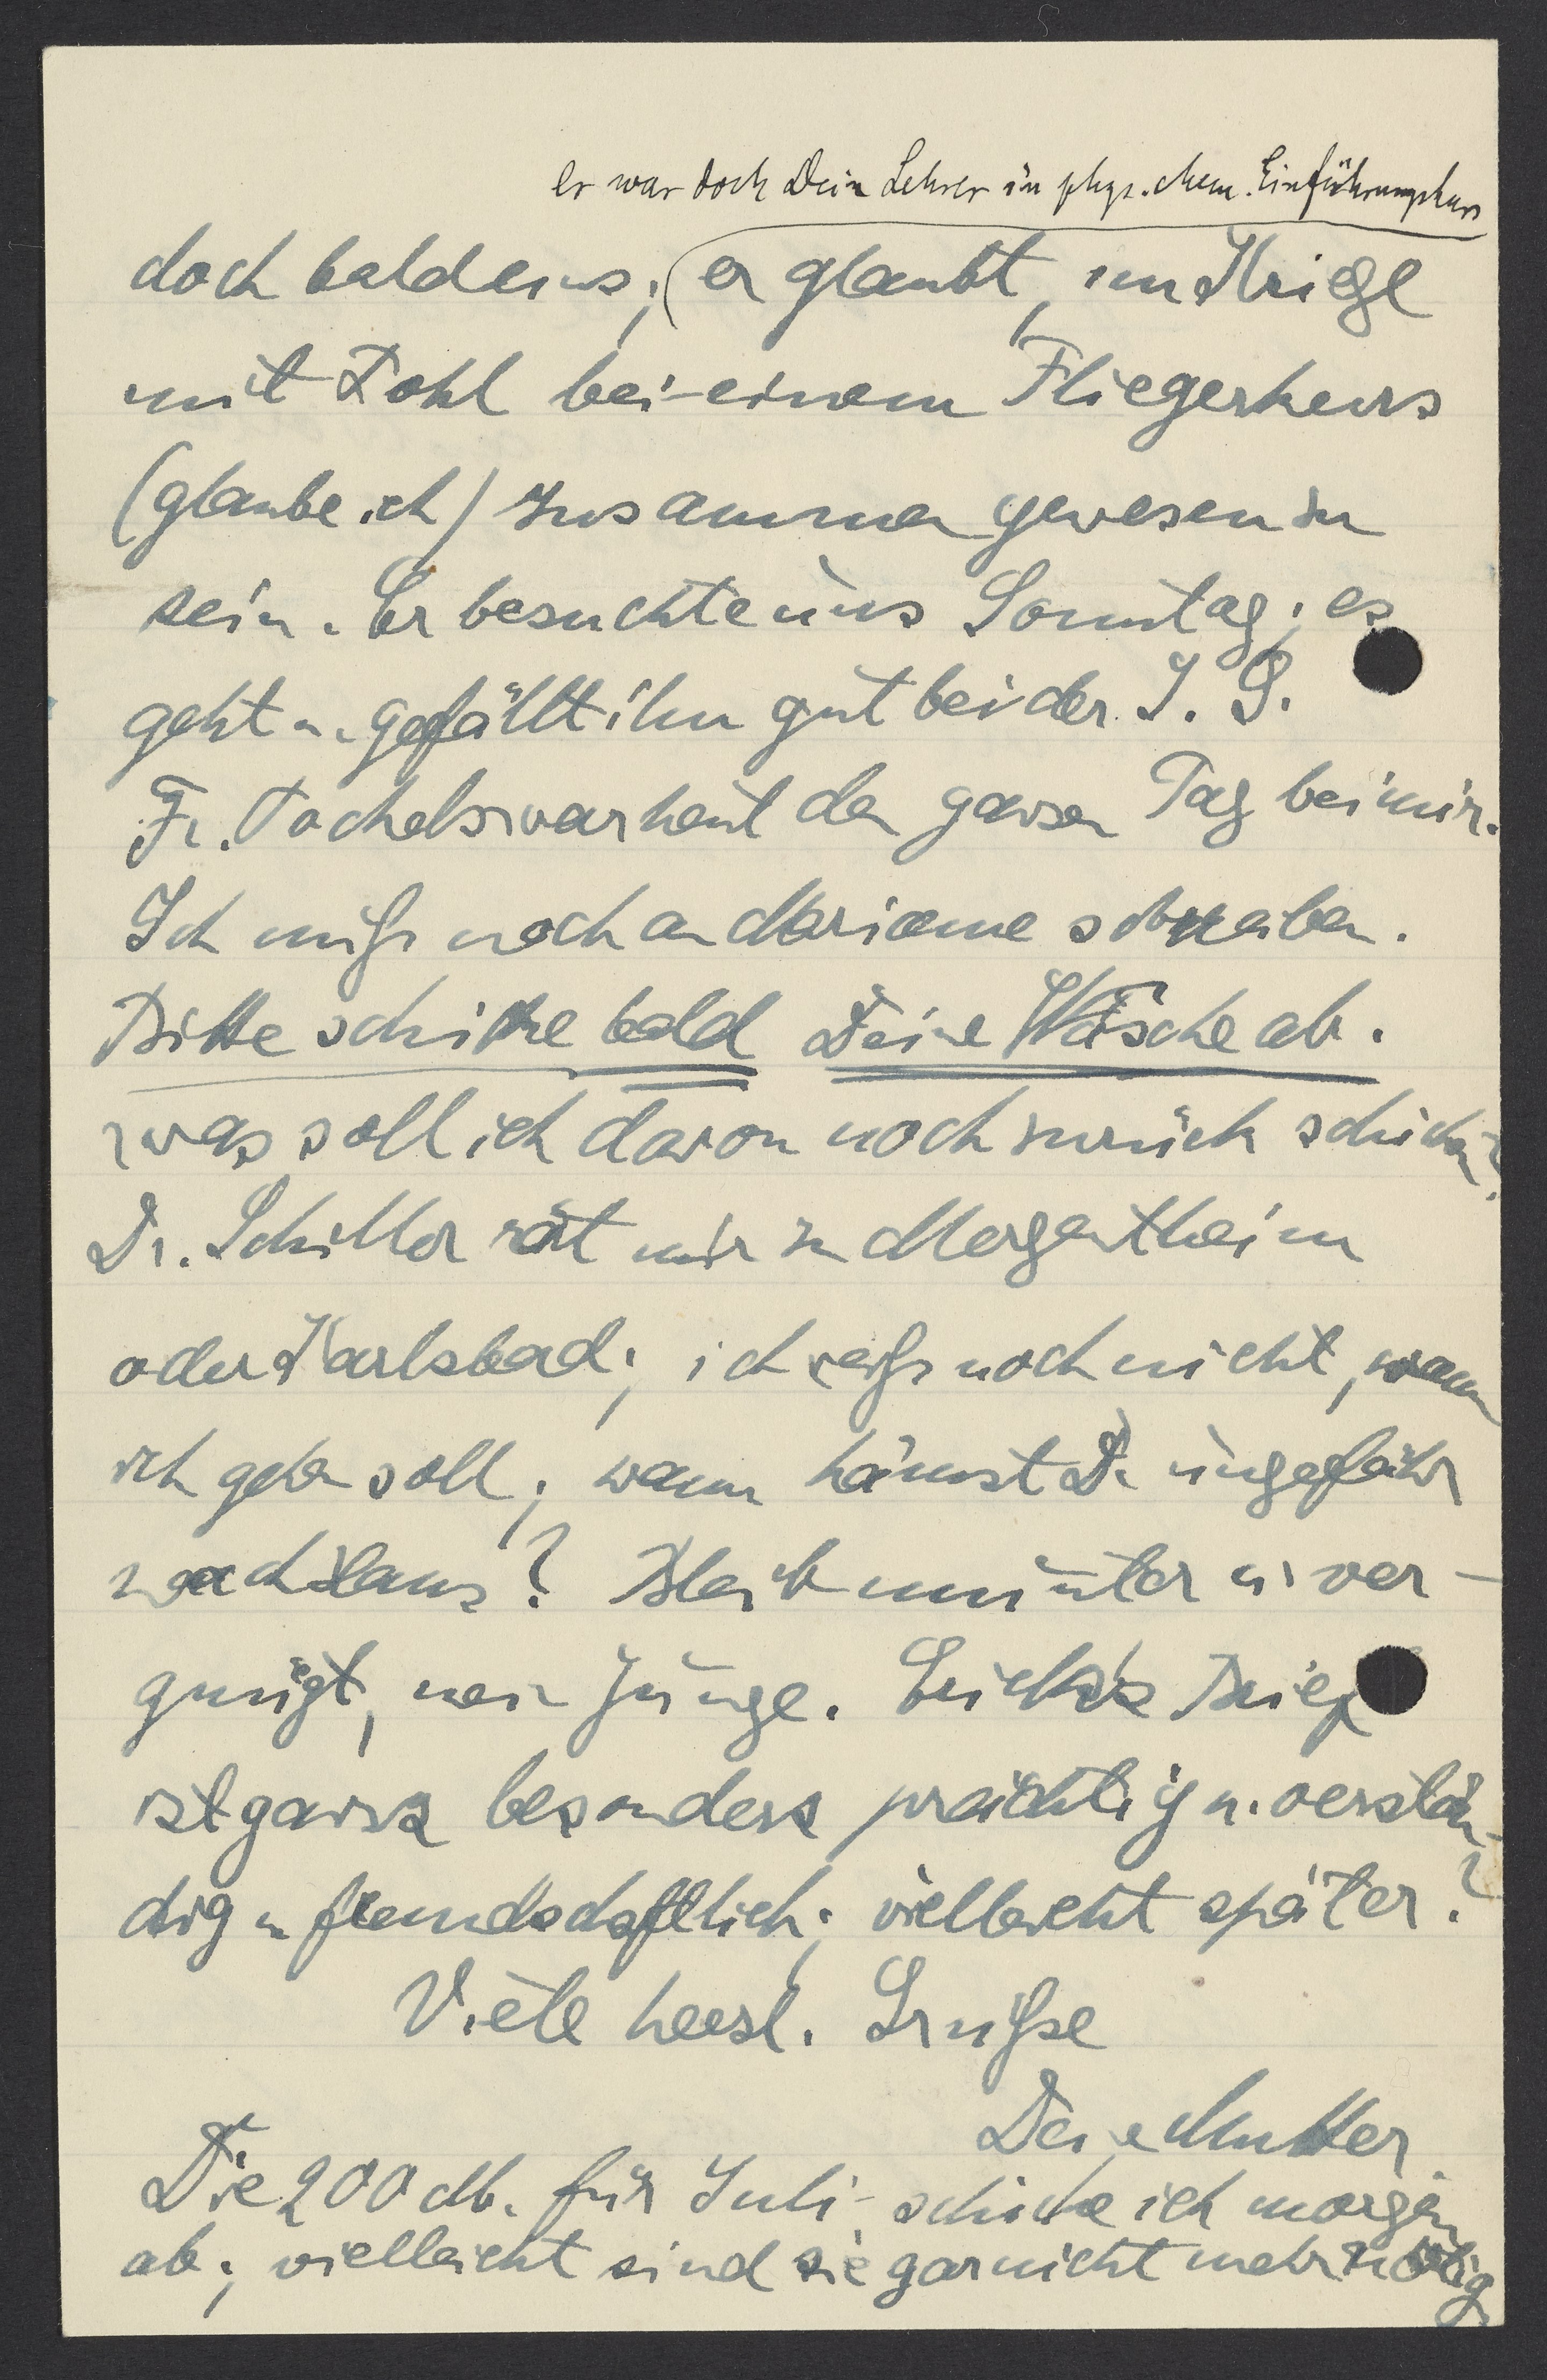 er war doch Dein Lehrer in phys. chem. Einführungskurs
doch bald eins; (er glaubt, im Kriege
mit Pohl bei einem Fliegerkurs
(glaube ich) zusammen gewesen zu
sein. Er besuchte uns Sonntag; es
geht u. gefällt ihm gut bei der I. G.
Fr. war heut den ganzen Tag bei mir.
Ich muß noch an Marianne schreiben.
Bitte schicke bald Deine Wäsche ab.
was soll ich davon noch zurück schicken?
Dr. Schiller rät mir zu Mergentheim
oder Karlsbad; ich weiß noch nicht, wann
ich gehen soll; wann kämst Du ungefähr
nach Haus? Bleib munter u. ver-
gnügt, mein Junge. Brief
ist ganz besonders prächtig u. verstän-
dig u freundschaftlich; vielleicht später?
Viele herzl. Grüße
Deine Mutter.
Die 200 M. für Juli schicke ich morgen
ab; vielleicht sind sie gar nicht mehr nötig